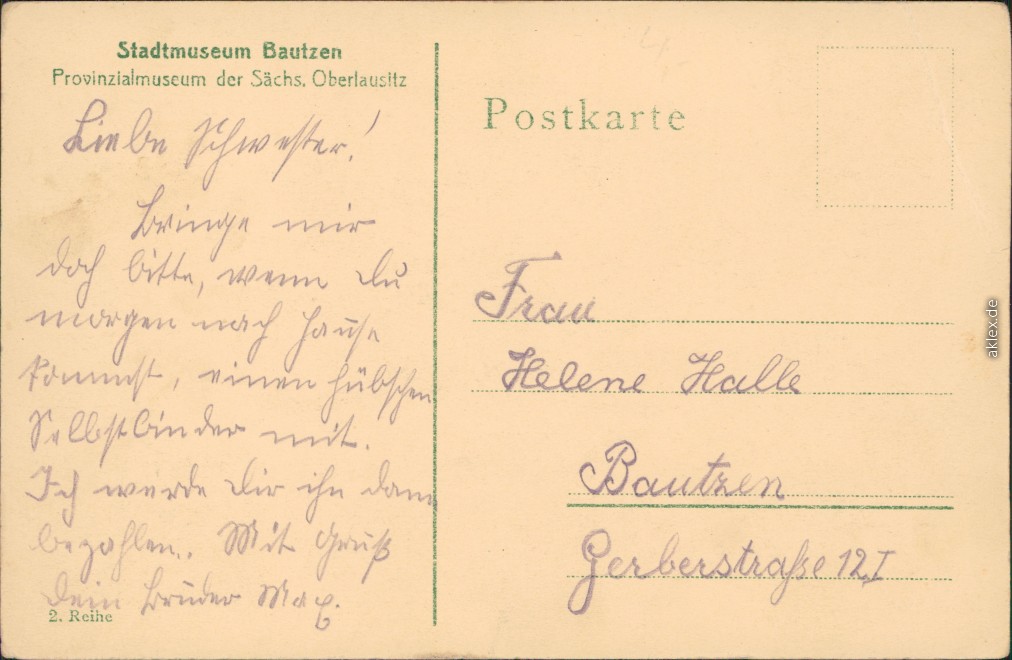 Stadtmuseum Bautzen
Provinzialmuseum der Sächs. Oberlausitz
Liebe Schwester!
Bringe mir
doch bitte, wenn Du
morgen nach Hause
kommst, einen hübschen
Selbstbinder mit.
Ich werde Dir ihn dann
bezahlen. Mit Gruß
Dein Bruder Max.
2. Reihe
Postkarte
Frau
Helene Halle
Bautzen
Gerberstraße 12I
aklex.de